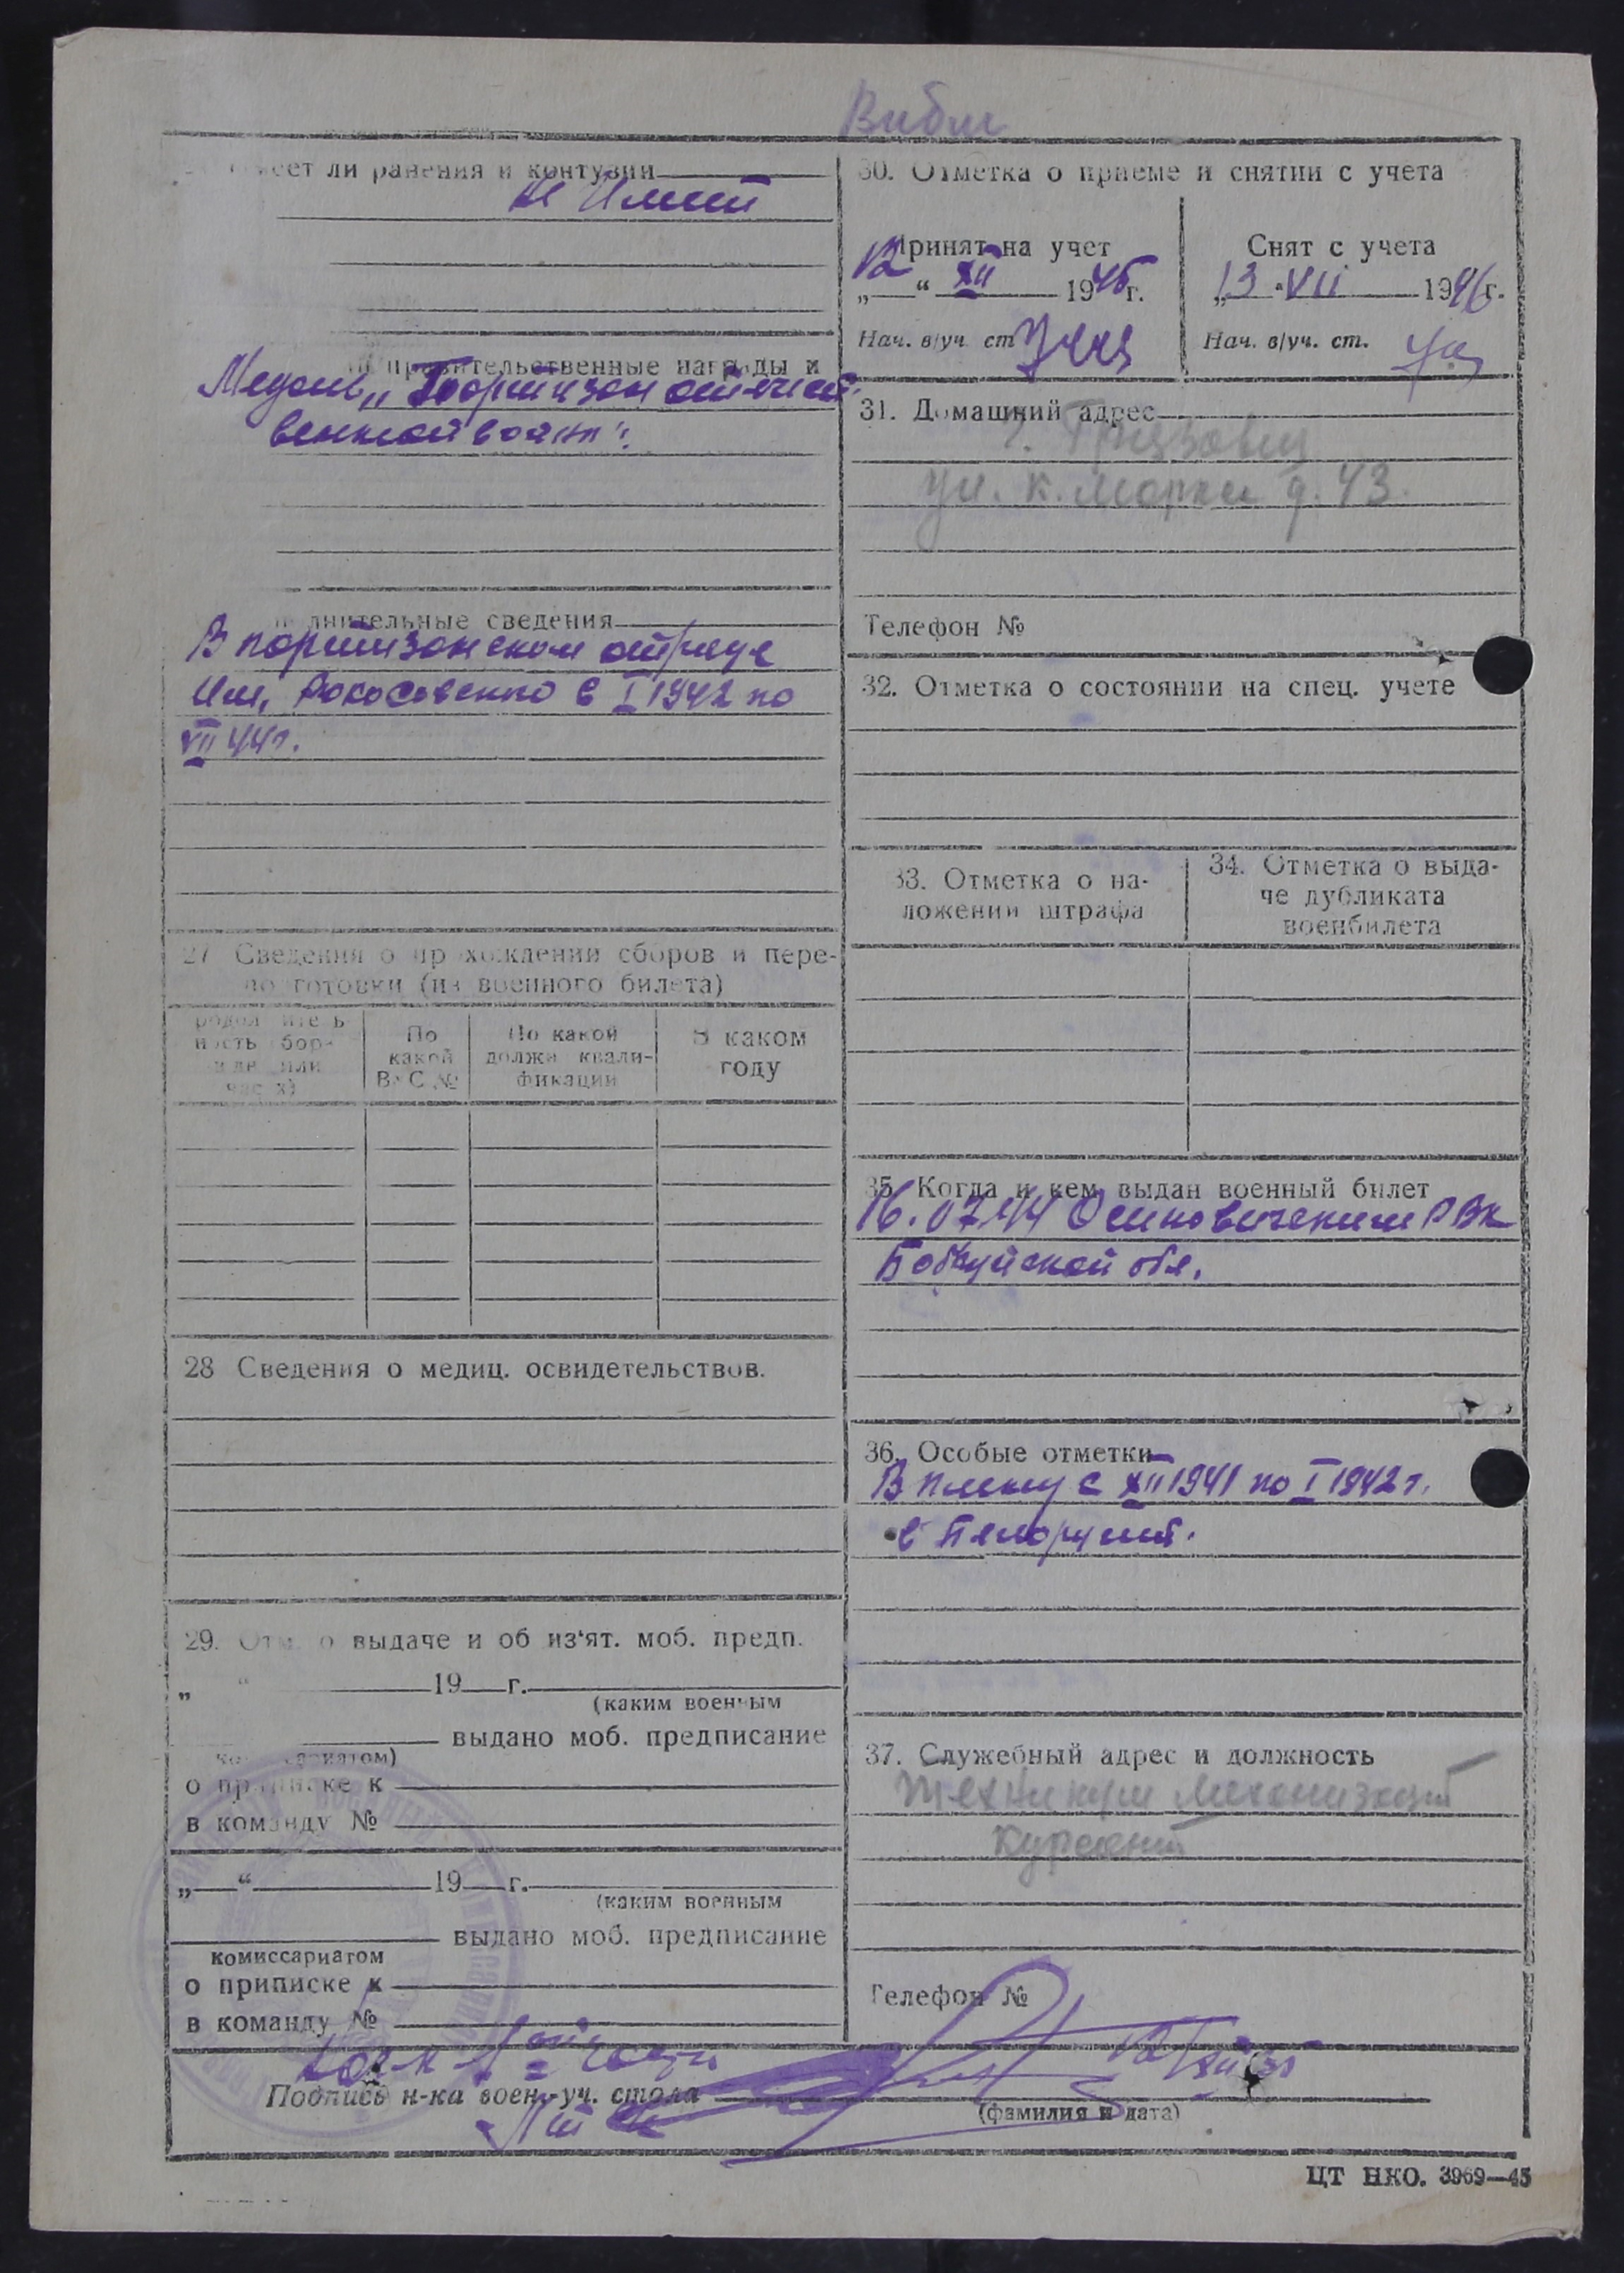 Выбыл
ет ли ранения и контузии
не имеет
правительственные награды и
Медаль „Партизан отечест-
венной войны".
лнительные сведения
В партизанском отряде
им. Рокосовского с I 1942 по
VII 44г.
27 Сведения о прхождении сборов и пере-
по готовки (из военного билета)
По какой В С №
По какой должн квали-фикации
В каком году
28 Сведения о медиц. освидетельствов.
29. Отм. о выдаче и об из'ят. моб. предп.
„ “ 19 г.
(каким военным
выдано моб. предписание
о приписке к
в команду №
„ “ 19 г.
(каким военным
выдано моб. предписание
комиссариатом
о приписке к
в команду №
30. Отметка о приеме и снятии с учета
Принят на учет
12 “ XII 1945г.
Нач. в/уч. ст.
Снят с учета
„13 “ VII 1946г.
Нач. в/уч. ст.
31. Домашний адрес
г. Грязовец
ул. К. Маркса д. 43.
Телефон №
32. Отметка о состоянии на спец. учете
33. Отметка о на-
ложении штрафа
34. Отметка о выда-
че дубликата
военбилета
35. Когда и кем выдан военный билет
16.07.44 Осиповичским РВК
Бобруйской обл.
36. Особые отметки
В плену с XII 1941 по I 1942 г.
в Белоруссии.
37. Служебный адрес и должность
Техникум Механизации
Курсант
Телефон №
Подпись н-ка воен.-уч. стола
(фамилия и дата)
ЦТ НКО. 3969—45